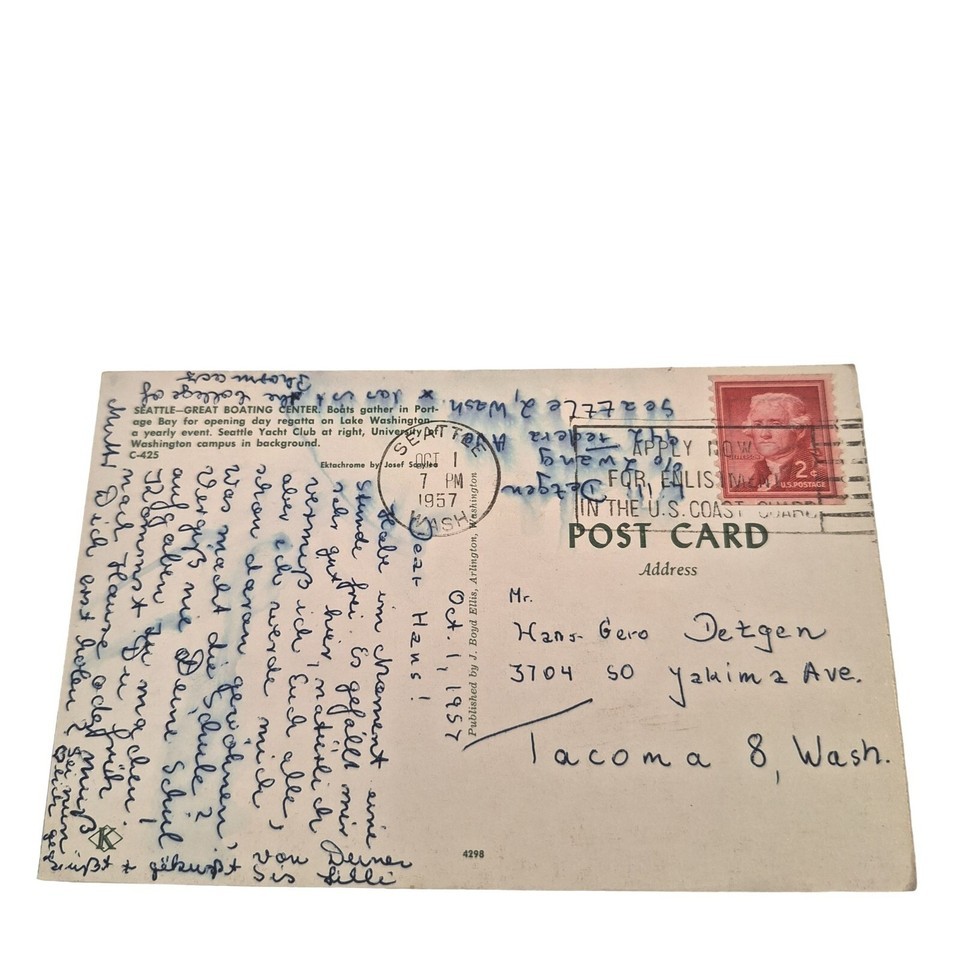 SEATTLE—GREAT BOATING CENTER. Boats gather in Port-
age Bay for opening day regatta on Lake Washington
a yearly event. Seattle Yacht Club at right, University of
Washington campus in background.
C-425
Ektachrome by Josef Scaylea
SEATTLE
OCT 1
7 PM
1957
WASH.
APPLY NOW
FOR ENLISTMENT
IN THE U.S. COAST GUARD
2¢
U.S. POSTAGE
POST CARD
Address
Mr.
Hans-Gero Detzgen
3704 So Yakima Ave.
Tacoma 8, Wash.
Published by J. Boyd Ellis, Arlington, Washington
4298
K
Lilli Detzgen
c/o Zwang
Federal Ave
Seattle 2, Wash.
Oct. 1, 1957
Dear Hans!
Habe im Moment eine
Stunde frei. Es gefällt mir
sehr gut hier, natürlich
vermiß ich Euch alle,
aber ich werde mich
schon daran gewöhnen,
Was macht die Schule?
Vergiß nie Deine Schul
aufgaben zu machen!
Kommst Du früh
nach Hause oder muß
Mutti Dich erst holen?
Sei
von Deiner
Sis Lilli
* das ist
the College of
Pharmacy